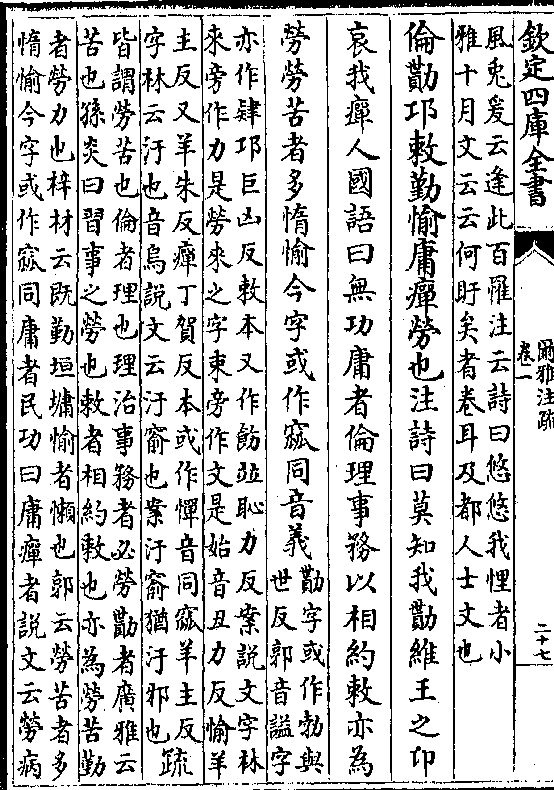 欽定四庫全書
爾雅注疏
卷一
二十七
風兎爰云逢此百罹注云詩曰悠悠我悝者小
雅十月文云云何盱矣者卷耳及都人士文也
倫勩卭敕勤愉庸癉勞也注詩曰莫知我勩維王之卭
哀我癉人國語曰無功庸者倫理事務以相約敕亦為
勞勞苦者多惰愉今字或作窳同音義
勩字或作勃與
世反郭音謚字
亦作肄卭巨凶反敕本又作飭並恥力反案説文字林
來旁作力是勞來之字東旁作文是始音丑力反愉羊
主反又羊朱反癉丁賀反本或作憚音同窳羊主反
字林云汙也音烏説文云汙窬也案汙窬猶汙邪也
疏
皆謂勞苦也倫者理也理治事務者必勞勩者廣雅云
苦也孫炎曰習事之勞也敕者相約敕也亦為勞苦勤
者勞力也梓材云既勤垣墉愉者懶也郭云勞苦者多
惰愉今字或作窳同庸者民功曰庸癉者説文云勞病